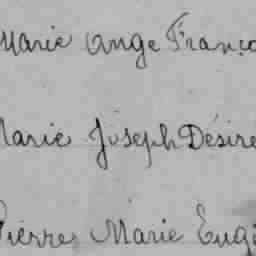 Marie Ange Franço
Marie Joseph Désiré
Pierre Marie Eugè